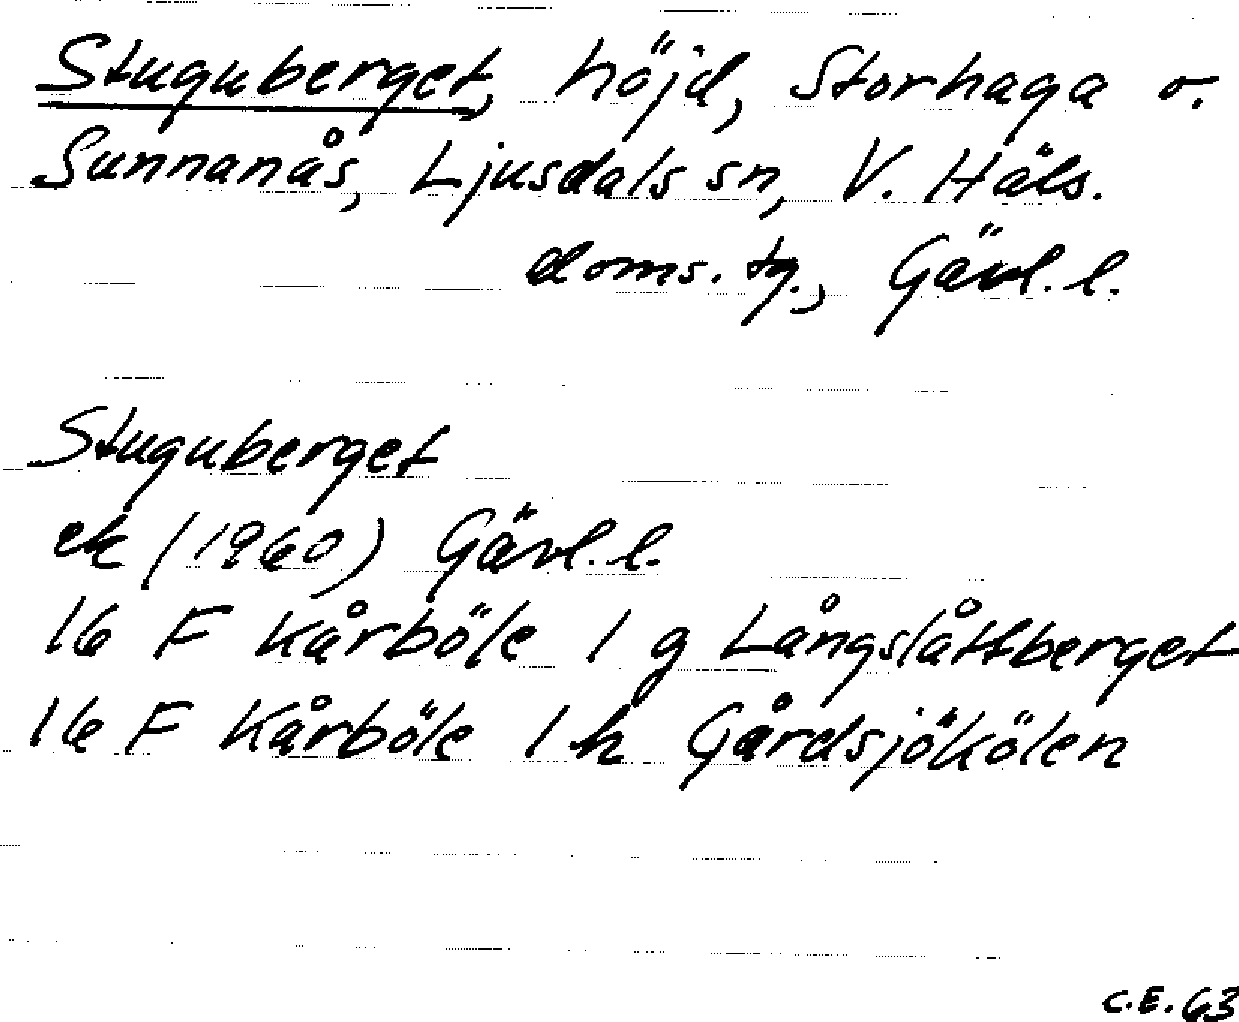 Stuguberget, höjd, Storhaga o.
Sunnanås, Ljusdals sn, V. Häls.
doms. tg., Gävl. l.
Stuguberget
ek (1960) Gävl. l.
16 F Kårböle 1 g Långslåttberget
16 F Kårböle 1 h Gårdsjökölen
C.E. 63